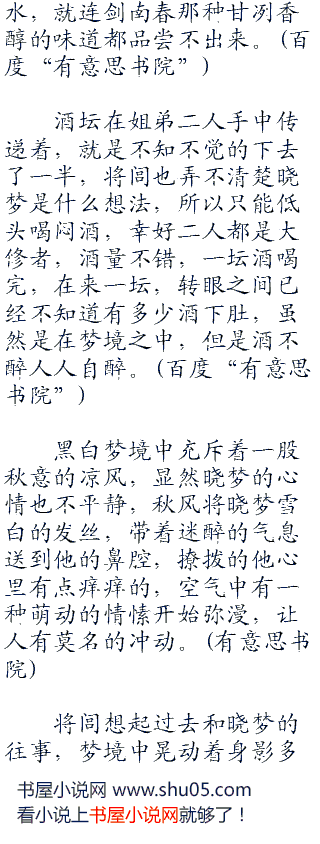 水，就连剑南春那种甘冽香
醇的味道都品尝不出来。(百
度“有意思书院”)
酒坛在姐弟二人手中传
递着，就是不知不觉的下去
了一半，将闾也弄不清楚晓
梦是什么想法，所以只能低
头喝闷酒，幸好二人都是大
修者，酒量不错，一坛酒喝
完，在来一坛，转眼之间已
经不知道有多少酒下肚，虽
然是在梦境之中，但是酒不
醉人人自醉。(百度“有意思
书院”)
黑白梦境中充斥着一股
秋意的凉风，显然晓梦的心
情也不平静，秋风将晓梦雪
白的发丝，带着迷醉的气息
送到他的鼻腔，撩拨的他心
里有点痒痒的，空气中有一
种萌动的情愫开始弥漫，让
人有莫名的冲动。(有意思书
院)
将闾想起过去和晓梦的
往事，梦境中晃动着身影多
书屋小说网 www.shu05.com
看小说上书屋小说网就够了！